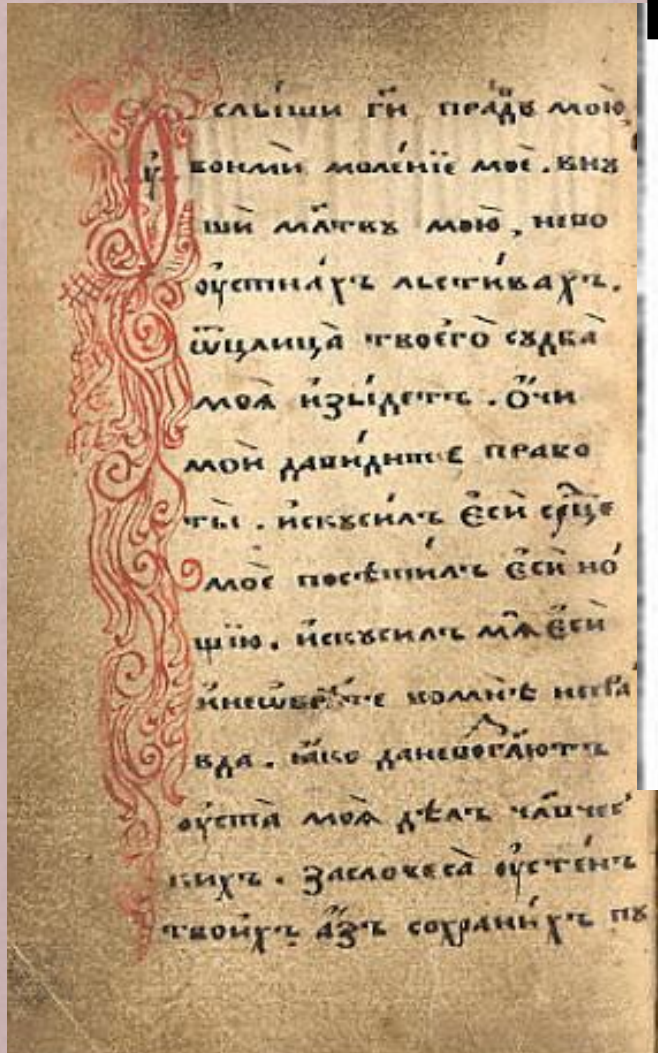 Оу҆слы́ши гй҃ пра́вдꙋ мою̀
вонмѝ моле́нїе моѐ . внꙋ
шѝ мл҃твꙋ мою̀ , нево
оу҆стна́хъ льсти́вахъ .
ѿ лица̀ твоегѡ̀ сꙋдба̀
моѧ̀ и҆зы́детъ . ѻ҆́чи
моѝ дави́дитѣ право
ты̀ . и҆скꙋси́лъ є҆сѝ ср҃це
моѐ посѣти́лъ є҆сѝ но́
щїю . и҆скꙋси́лъ мѧ̀ є҆сѝ
и҆неѡбрѣ́те вомнѣ̀ непра́
вда . ꙗ҆́ко даневозгл҃ютъ
оу҆ста̀ моѧ̀ дѣ́лъ чл҃вчес
кихъ . Засловеса̀ оу҆сте́нъ
твои́хъ а҆́зъ сохрани́хъ пꙋ